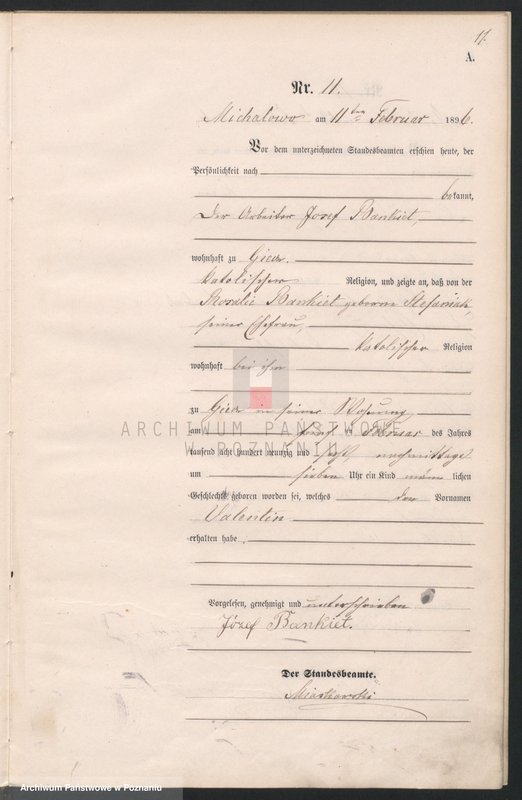 17.
A.
Nr. 11.
Michalowo am 11ten Februar 1896.
Vor dem unterzeichneten Standesbeamten erschien heute, der
Persönlichkeit nach
bekannt,
der Arbeiter Josef Bankiet,
wohnhaft zu Giecz.
katolischer Religion, und zeigte an, daß von der
Rosalie Bankiet geborne Stefaniak,
seiner Ehefrau,
katolischer Religion
wohnhaft bei ihm
zu Giecz in seiner Wohnung
am Februar des Jahres
tausend acht hundert neunzig und sechs, nachmittags
um sieben Uhr ein Kind männlichen
Geschlechts geboren worden sei, welches den Vornamen
Valentin
erhalten habe.
Vorgelesen, genehmigt und unterschrieben
Józef Bankiet.
Der Standesbeamte.
Miaskowski
ARCHIWUM PAŃSTWOWE
W POZNANIU
Archiwum Państwowe w Poznaniu